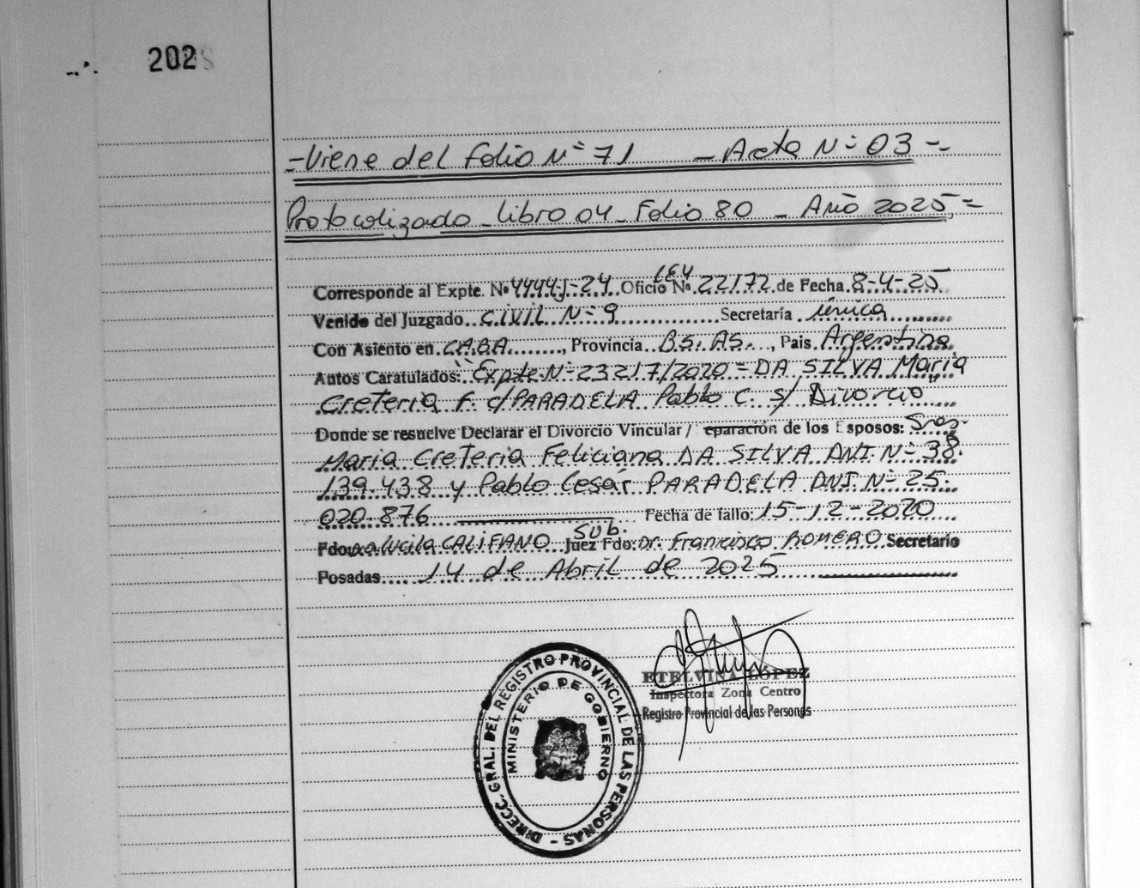 2025
-Viene del Folio Nº 71 - Acta Nº 03 -
Protocolizado - Libro 04 - Folio 80 - Año 2025 =
Corresponde al Expte. Nº 4444J-24 Oficio LEY Nº 22172 de Fecha 8-4-25
Venido del Juzgado CIVIL Nº 9 Secretaría única
Con Asiento en C.A.B.A., Provincia BS. AS., Pais Argentina
Autos Caratulados: "Expte Nº 23217/2020 = DA SILVA María
Creteria F. c/PARADELA Pablo C. s/ Divorcio"
Donde se resuelve Declarar el Divorcio Vincular / eparación de los Esposos: Sres.
María Creteria Feliciana DA SILVA DNI. Nº 38.
139.438 y Pablo Cesár PARADELA DNI. Nº 25.
020.876 Fecha de fallo: 15-12-2020
Fdo. Lucila CALIFANO Juez Sub. Fdo: Dr. Francisco ROMERO Secretario
Posadas 14 de Abril de 2025
ETELVINA LOPEZ
Inspectora Zona Centro
Registro Provincial de las Personas
DIRECC. GRAL. DEL REGISTRO PROVINCIAL DE LAS PERSONAS -
MINISTERIO DE GOBIERNO